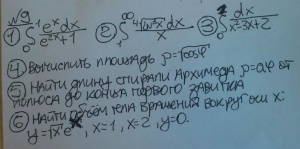 №9
① ∫₀¹ eˣdx / e²ˣ+1 ② ∫₁^∞ √ln²x dx / x ③ ∫₀² dx / x²-3x+2
④ Вычислить площадь ρ=√cosφ
⑤ Найти длину спирали Архимеда ρ=aφ от
полюса до конца первого завитка
⑥ Найти объём тела вращения вокруг оси x:
y=√x eˣ, x=1, x=2, y=0.